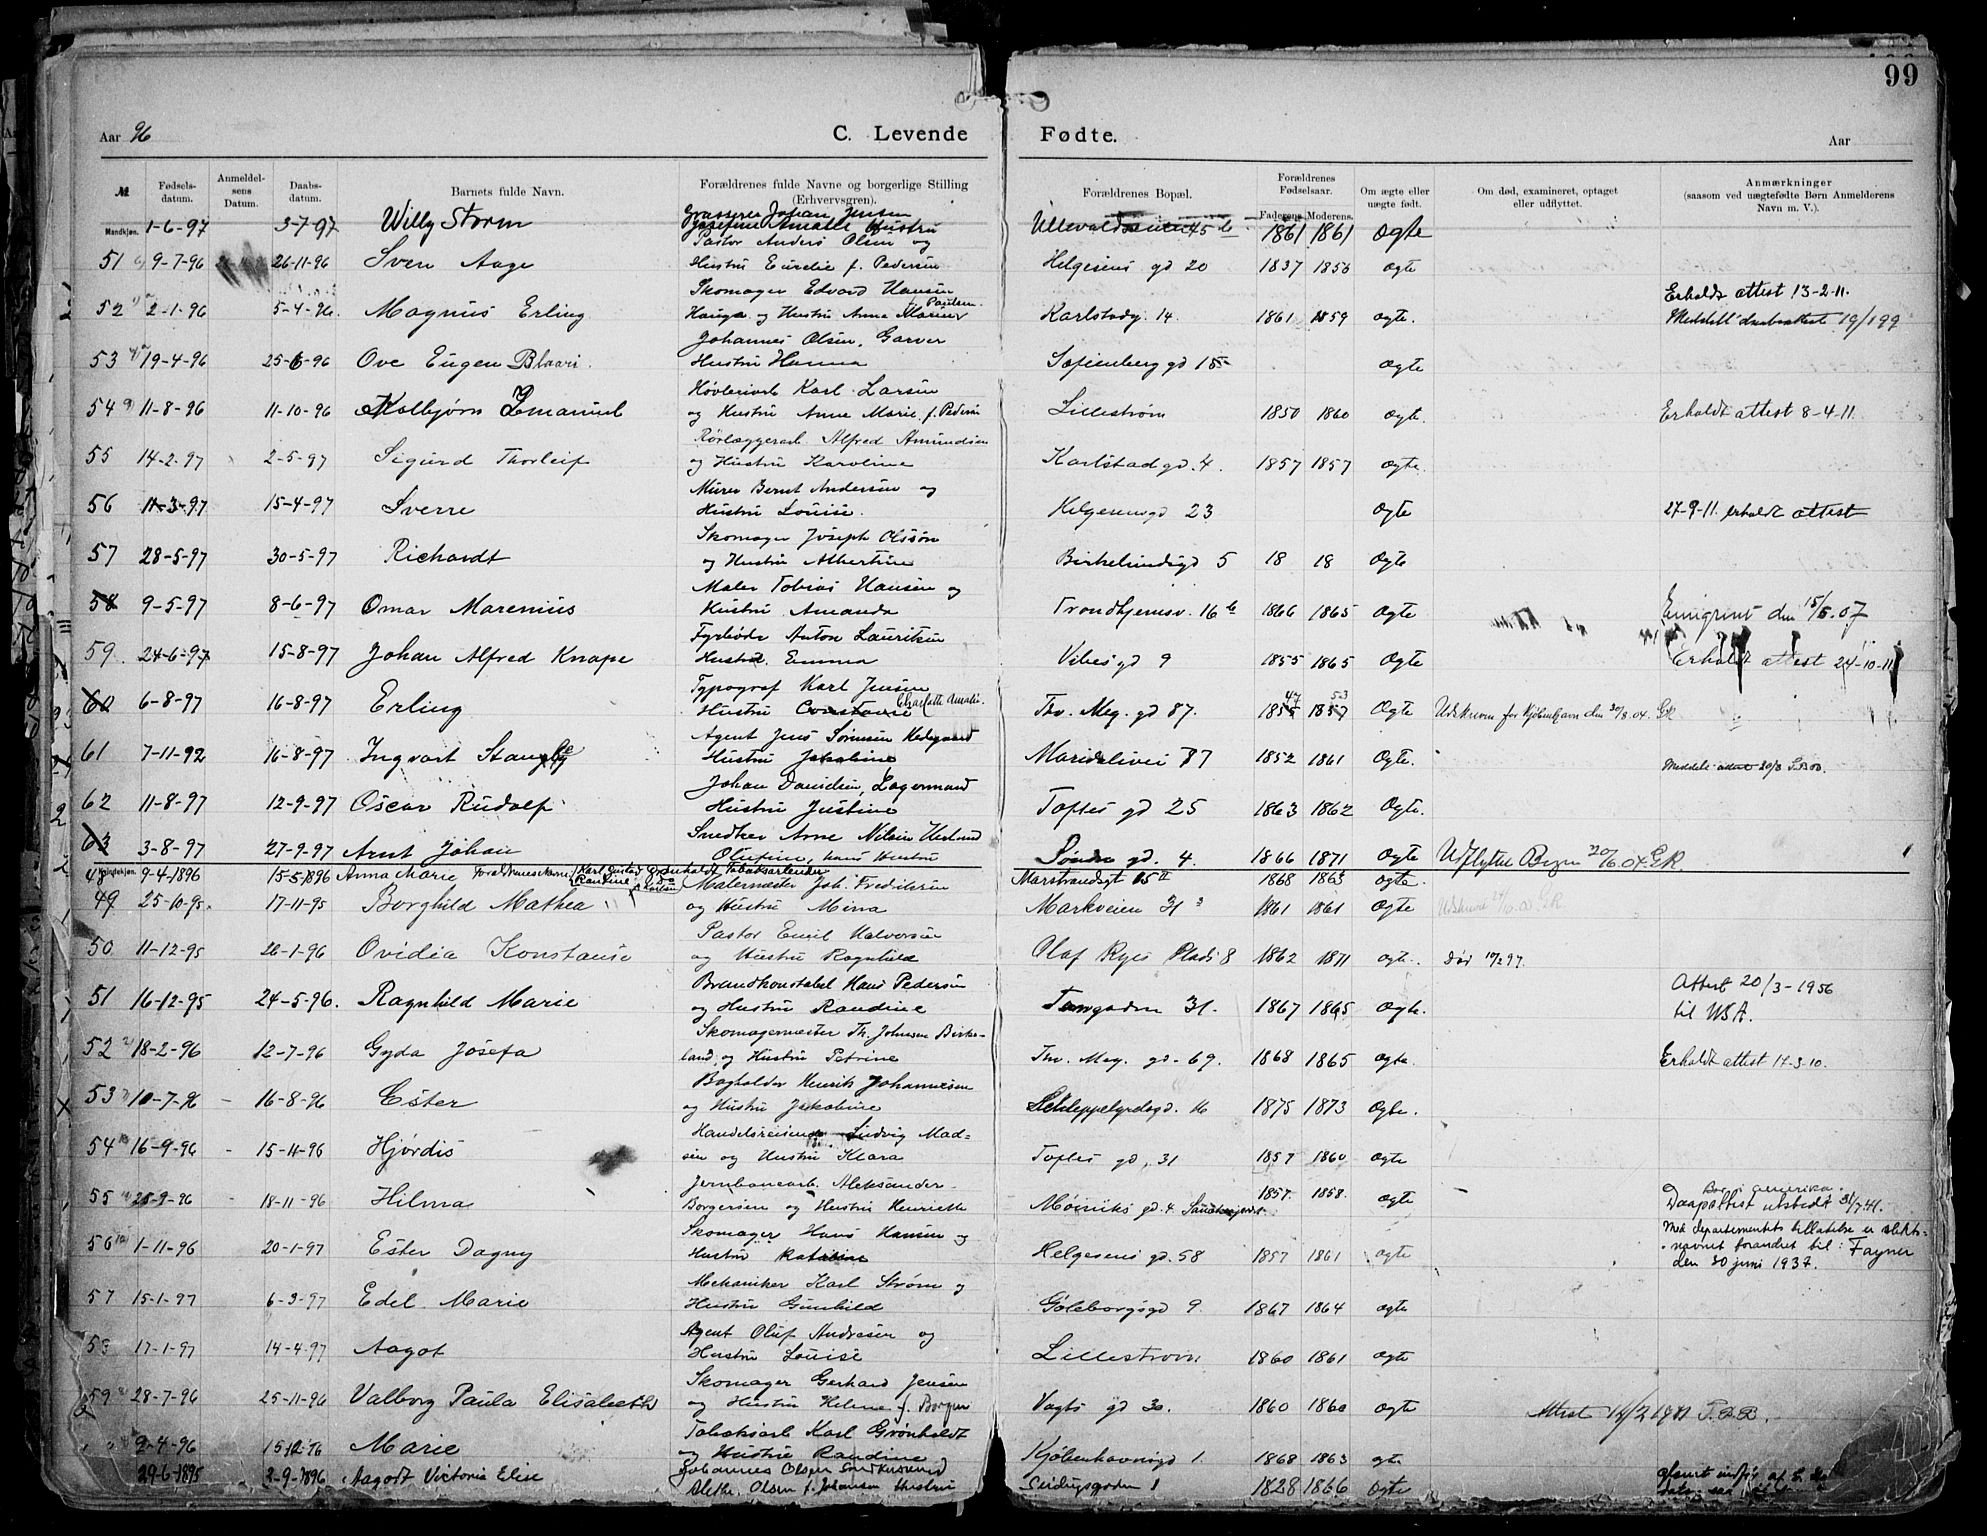 99
Aar 96 C. Levende Fødte. Aar
№ Fødsels-datum. Anmeldel-sens Datum. Daabs-datum. Barnets fulde Navn. Forældrenes fulde Navne og borgerlige Stilling (Erhvervsgren). Forældrenes Bopæl. Forældrenes Fødselsaar. Faderens Moderens. Om ægte eller uægte født. Om død, examineret, optaget eller udflyttet. Anmærkninger (saasom ved uægtefødte Børn Anmelderens Navn m. V.).
Mandkjøn. 1-6-97 3-7-97 Willy Storm Grosserer Johan Jensen Josefine Amalie Hustru 45 b 1861 1861 Ogte
Pastor Anders Olsen og
51 9-7-96 26-11-96 Sven Aage Hustru f. Pedersen Helgesens gd 20 1837 1856 ogte
Skomager Edvard Hansen
52 2-1-96 5-4-96. Magnus Erling Hauge og Hustru Anne Marie f. Paulsen Karlstadg. 14. 1861 1859 ogte. Erholdt attest 13-2-11.
Meddelt 19/1 99
Johannes Olsen, Garver
53 19-4-96 25-6-96 Ove Eugen Blaari. Hustru Hanna Sofienberg gd 15 ogte
Høvleriarb Karl Larsen
54 11-8-96 11-10-96 Kolbjørn Emanuel og Hustru Anne Marie f. Pedersen Lillestrøm 1850 1860 ogte. Erholdt attest 8-4-11.
Rørlæggerarb. Alfred Amundsen
55 14-2-97 2-5-97 Sigurd Thorleif og Hustru Karoline Karlstad gd. 4. 1857 1857 ogte.
Murer Bernt Andersen og
56 11-3-97 15-4-97 Sverre Hustru Louise. Helgesensgd 23 Ogte 27-9-11. erholdt attest
Skomager Joseph Olsson
57 28-5-97 30-5-97 Richardt og Hustru Albertine Birkelundsgd 5 18 18 Ogte
Maler Tobias Hansen og
58 9-5-97 8-6-97 Omar Marenius Hustru Amanda Trondhjemsv. 16 b 1866 1865 Ogte Emigrint den 15/5.07
Fyrbøder Anton Lauritsen
59. 24-6-97 15-8-97 Johan Alfred Knape Hustru. Emma Vibesgd 9 1855 1865 Ogte Erholdt attest 24-10-11
Typograf Karl Jensen
60 6-8-97 16-8-97 Erling Hustru Constance Charlotte Amalie. Thv. Meg. gd 87. 1855 47 1857 53 Ogte Udskreven for Kjøbenhavn den 30/8.04. GR
Agent Jens Sørensen Hedegaard
61 7-11-92 16-8-97 Ingvart Hustru Jakobine Maridalsvei 87 1852 1861 Ogte. Meddelt attest 20/8
Johan Danielsen, Lagermand
62 11-8-97 12-9-97 Oscar Rudolf Hustru Justine Toftes gd 25 1863 1862 Ogte.
Snedker Arne Nilsen
63 3-8-97 27-9-97 Arnt Johan Olufine, hans Hustru Søndre gd. 4. 1866 1871 Ogte Udflyttet Bergen 20/6.04. GR.
48 Kvindekjøn. 9-4-1896 15-5-1896 Anna Marie Forældrenes navne: Karl Gustad Grønholdt Tobaksarbeider Randine Marstrandsgt 15 II 1868 1863 ogte.
Malermester Joh. Fredriksen
49 25-10-95. 17-11-95 Borghild Mathea og Hustru Mina Markveien 31 3 1861 1861 Ogte GR
Pastor Emil Halvorsen
50 11-12-95 26-1-96 Ovidia Konstanse og Hustru Ragnhild Olaf Ryes Plads 8 1862 1871 ogte. Død 17/2 97.
Brandkonstabel Hans Pedersen
51 16-12-95 24-5-96. Ragnhild Marie og Hustru Randine 31. 1867 1865 ogte. Attest 20/3-1956
til USA.
Skomagermester Th. Johnsen Birke-
52 18-2-96 12-7-96 Gyda Josefa land og Hustru Petrine Thv. Meg. gd. 69. 1868 1865 ogte Erholdt attest 14-3-10.
Bogholder Henrik Johannesen
53 10-7-96 - 16-8-96 Ester og Hustru Jakobine Schleppelgrelsgd. 16 1875 1873 Ogte.
Handelsreisende Ludvig Mad-
54 16-9-96 - 15-11-96 Hjørdis sen og Hustru Klara Toftes gd, 31 1857 1860 ogte
Jernbanearb. Aleksander
55 25-9-96 - 18-11-96 Hilma Borgersen og Hustru Henriette gd. 4 1857. 1858. ogte Bor i Amerika.
Daapattest utstedt 31/7.41.
Skomager Hans Hansen og
56 1-11-96 20-1-97 Ester Dagny Hustru Katrine Helgesens gd. 58 1857 1861 ogte Med departementets tillatelse er slekts-
navnet forandret til: Fayner
den 30 juni 1937.
Mekaniker Karl Strøm og
57 15-1-97 6-3-97 Edel Marie Hustru Gunhild Gøteborgsgd 9 1867 1864 ogte
Agent Oluf Andresen og
58 17-1-97 14-4-97 Aagot Hustru Louise Lillestrøm 1860 1861 ogte
Skomager Gerhard Jensen
59 28-7-96 25-11-96 Valborg Paula Elisabeth og Hustru Helene f. Borgen Vogts gd 30. 1860 1860 ogte Attest
Tobaksarb Karl Grønholdt
9-4-96 Marie og Hustru Randine Kjøbenhavnsgd 1. 1868 1863 ogte
29-6-1895 2-9-1896 Aagodt Victoria Elise Johannes Olsen Alethe. Olsen f. Johansen Hustru 1 1828 1866 Ogte